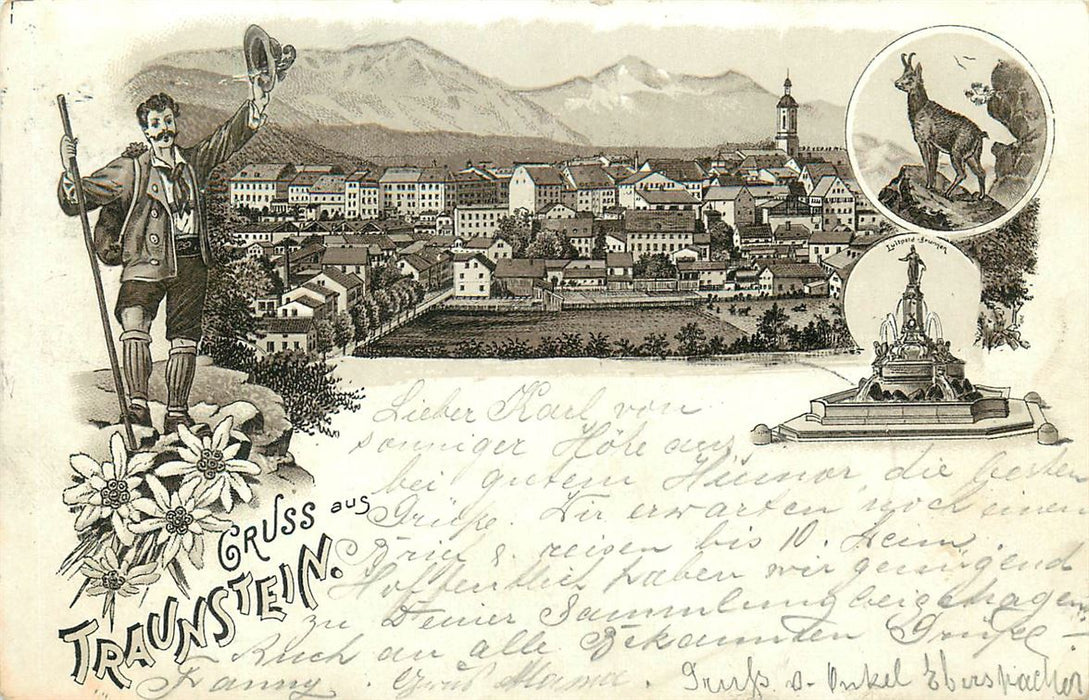 Luitpold-Brunnen
GRUSS aus
TRAUNSTEIN.
Lieber Karl von
sonniger Höhe aus
bei gutem Humor, die besten
Grüße. Wir erwarten noch einen
Brief & reisen bis 10. Heim
Hoffentlich haben wir genügend
zu Deiner Sammlung beigetragen
Auch an alle Bekannten Grüße -
Fanny. Gruß Mama. Gruß v. Onkel Eberspacher